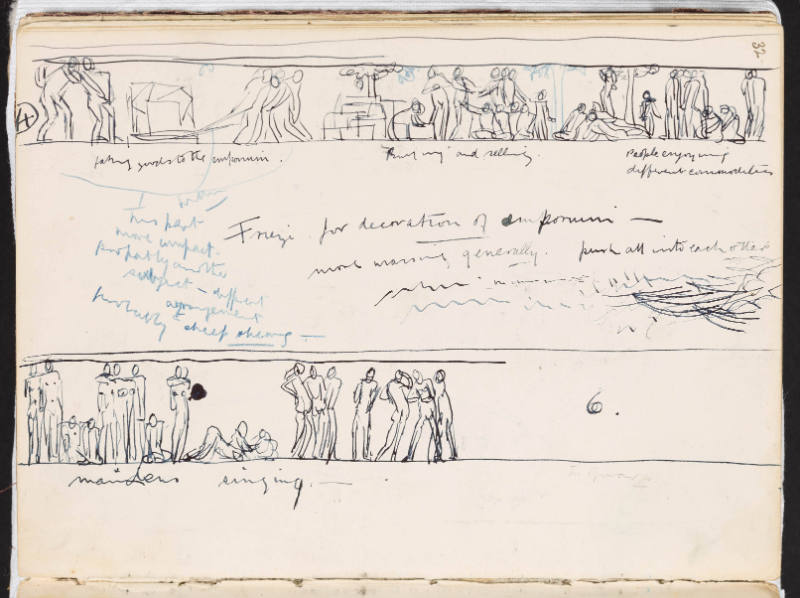 32
4
taking goods to the emporium.
Buying and selling.
People enjoying
different commodities
I
This part
more compact.
Probably another
subject - different
arrangement
Probably sheep shearing —
Frieze for decoration of emporium —
more massing generally. push all into each other
6.
maidens singing. —